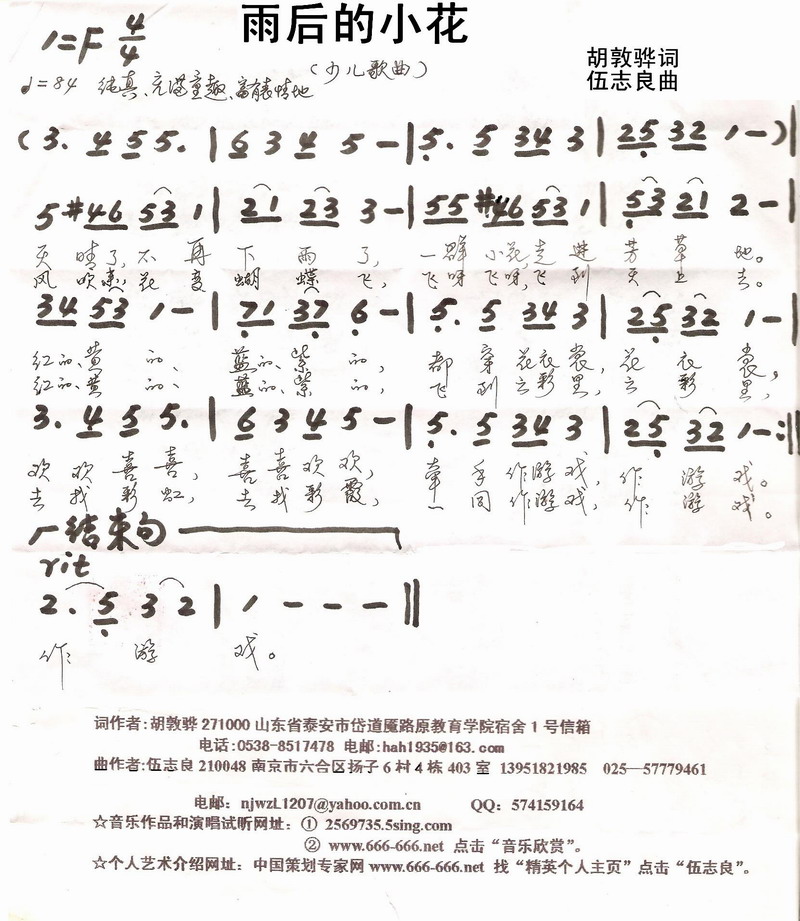 雨后的小花
1=F 4/4
胡敦骅词
(少儿歌曲)
伍志良曲
♩=84 纯真、充满童趣、富有表情地
(3. 4 5 5. | 6 3 4 5 - | 5. 5 34 3 | 25 32 1 - )|
5 #46 53 1 | 21 23 3 - | 55 #46 53 1 | 53 21 2 - |
天晴了,不再下雨了,一群小花,走进芳草地。
风吹来,花变蝴蝶飞,飞呀飞呀,飞到天上去。
34 53 1 - | 71 37 6 - | 5. 5 34 3 | 25 32 1 - |
红的、黄的、蓝的、紫的,都穿花衣裳,花衣裳,
红的、黄的、蓝的、紫的,飞到云彩里,云彩里,
3. 4 5 5. | 6 3 4 5 - | 5. 5 34 3 | 25 32 1 - :||
欢欢喜喜,喜喜欢欢,牵手作游戏,作游戏。
去找彩虹,去找彩霞,一同作游戏,作游戏。
结束句
rit
2. 5 3 2 | 1 - - - ||
作游戏。
词作者:胡敦骅 271000 山东省泰安市岱道庵路原教育学院宿舍 1 号信箱
电话:0538-8517478 电邮:hah1935@163.com
曲作者:伍志良 210048 南京市六合区扬子 6 村 4 栋 403 室 13951821985 025—57779461
电邮: njwzL1207@yahoo.com.cn QQ: 574159164
☆音乐作品和演唱试听网址:① 2569735.5sing.com
② www.666-666.net 点击“音乐欣赏”。
☆个人艺术介绍网址:中国策划专家网 www.666-666.net 找“精英个人主页”点击“伍志良”。